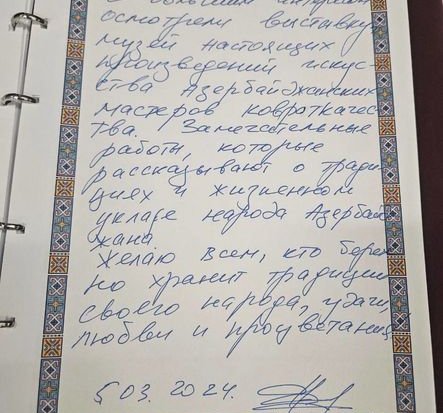 с большим интересом
осмотрели выставку,
музей настоящих
произведений искус-
ства Азербайджанских
мастеров ковроткачес-
тва. Замечательные
работы, которые
рассказывают о тради-
циях и жизненном
укладе народа Азербай
жана
Желаю всем, кто береж
но хранит традиции
своего народа, удачи,
любви и процветания
5 03. 2024.